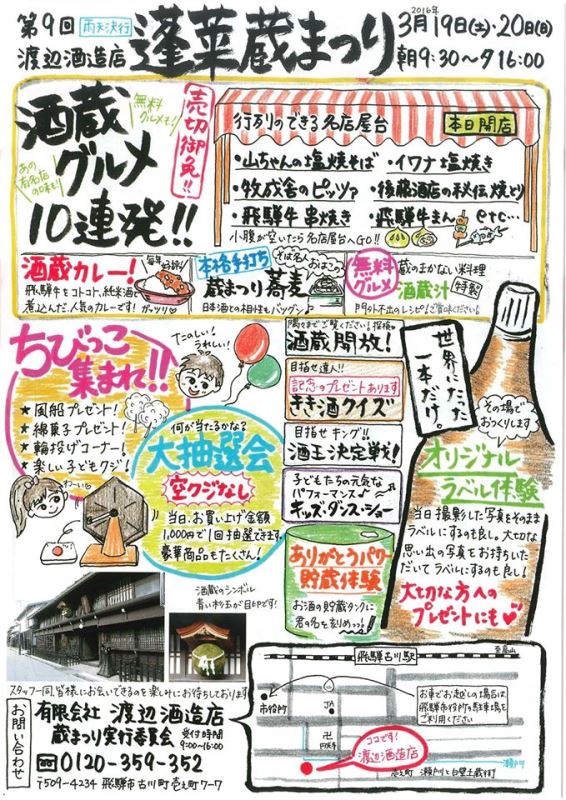 第9回 雨天決行
渡辺酒造店
蓬莱蔵まつり
2016年
3月19日(土)・20日(日)
朝9:30〜夕16:00
酒蔵
グルメ
10連発!!
無料
グルメも!
あの
有名店
の味も!
売切御免!!
行列のできる名店屋台
本日開店
・山ちゃんの塩焼そば
・イワナ塩焼き
・牧成舎のピッツァ
・後藤酒店の秘伝焼とり
・飛騨牛串焼き
・飛騨牛まん etc…
小腹が空いたら名店屋台へGO!!
酒蔵カレー!
毎年好評!
飛騨牛をコトコト、純米酒で
煮込んだ、人気のカレーです! ガッツリ♡
本格手打ち
蔵まつり蕎麦
そば名人
おまごころ
日本酒との相性もバツグン♪
無料
グルメ
蔵のまかない料理
酒蔵汁
特製
門外不出のレシピ!ご賞味ください!
ちびっこ
集まれ!!
たのしい!
うれしい!
★風船プレゼント!
★綿菓子プレゼント!
★輪投げコーナー!
★楽しい子どもクジ!
わーい♡
何が当たるかな?
大抽選会
空クジなし
当日、お買い上げ金額
1,000円で1回抽選できます
豪華商品もたくさん!
隅々までご覧ください!探検♡
酒蔵開放!
目指せ達人!!
記念のプレゼントあります
きき酒クイズ
目指せキング!!
酒王決定戦!
子どもたちの元気な
パフォーマンス♪
キッズ・ダンス・ショー
ありがとうパワー
貯蔵体験
お酒の貯蔵タンクに
君の名を刻めっっ!
世界にたった
一本だけ。
その場で
おつくりします
オリジナル
ラベル体験
当日撮影した写真をそのまま
ラベルにするのも良し。大切な
思い出の写真をお持ちいた
だいてラベルにするのも良し!
大切な方への
プレゼントにも♥
酒蔵のシンボル
青い杉玉が目印です!
スタッフ一同、皆様にお会いできるのを楽しみにお待ちしております
お問い合わせ
有限会社 渡辺酒造店
蔵まつり実行委員会
受付時間
9:00〜16:00
☎0120-359-352
〒509-4234 飛騨市古川町壱之町7-7
飛騨古川駅
至富山
市役所
JA
卍
円光寺
お車でお越しの場合は
飛騨市役所駐車場を
ご利用ください
ココです!
渡辺酒造店
瀬戸川
壱之町
瀬戸川と白壁土蔵街